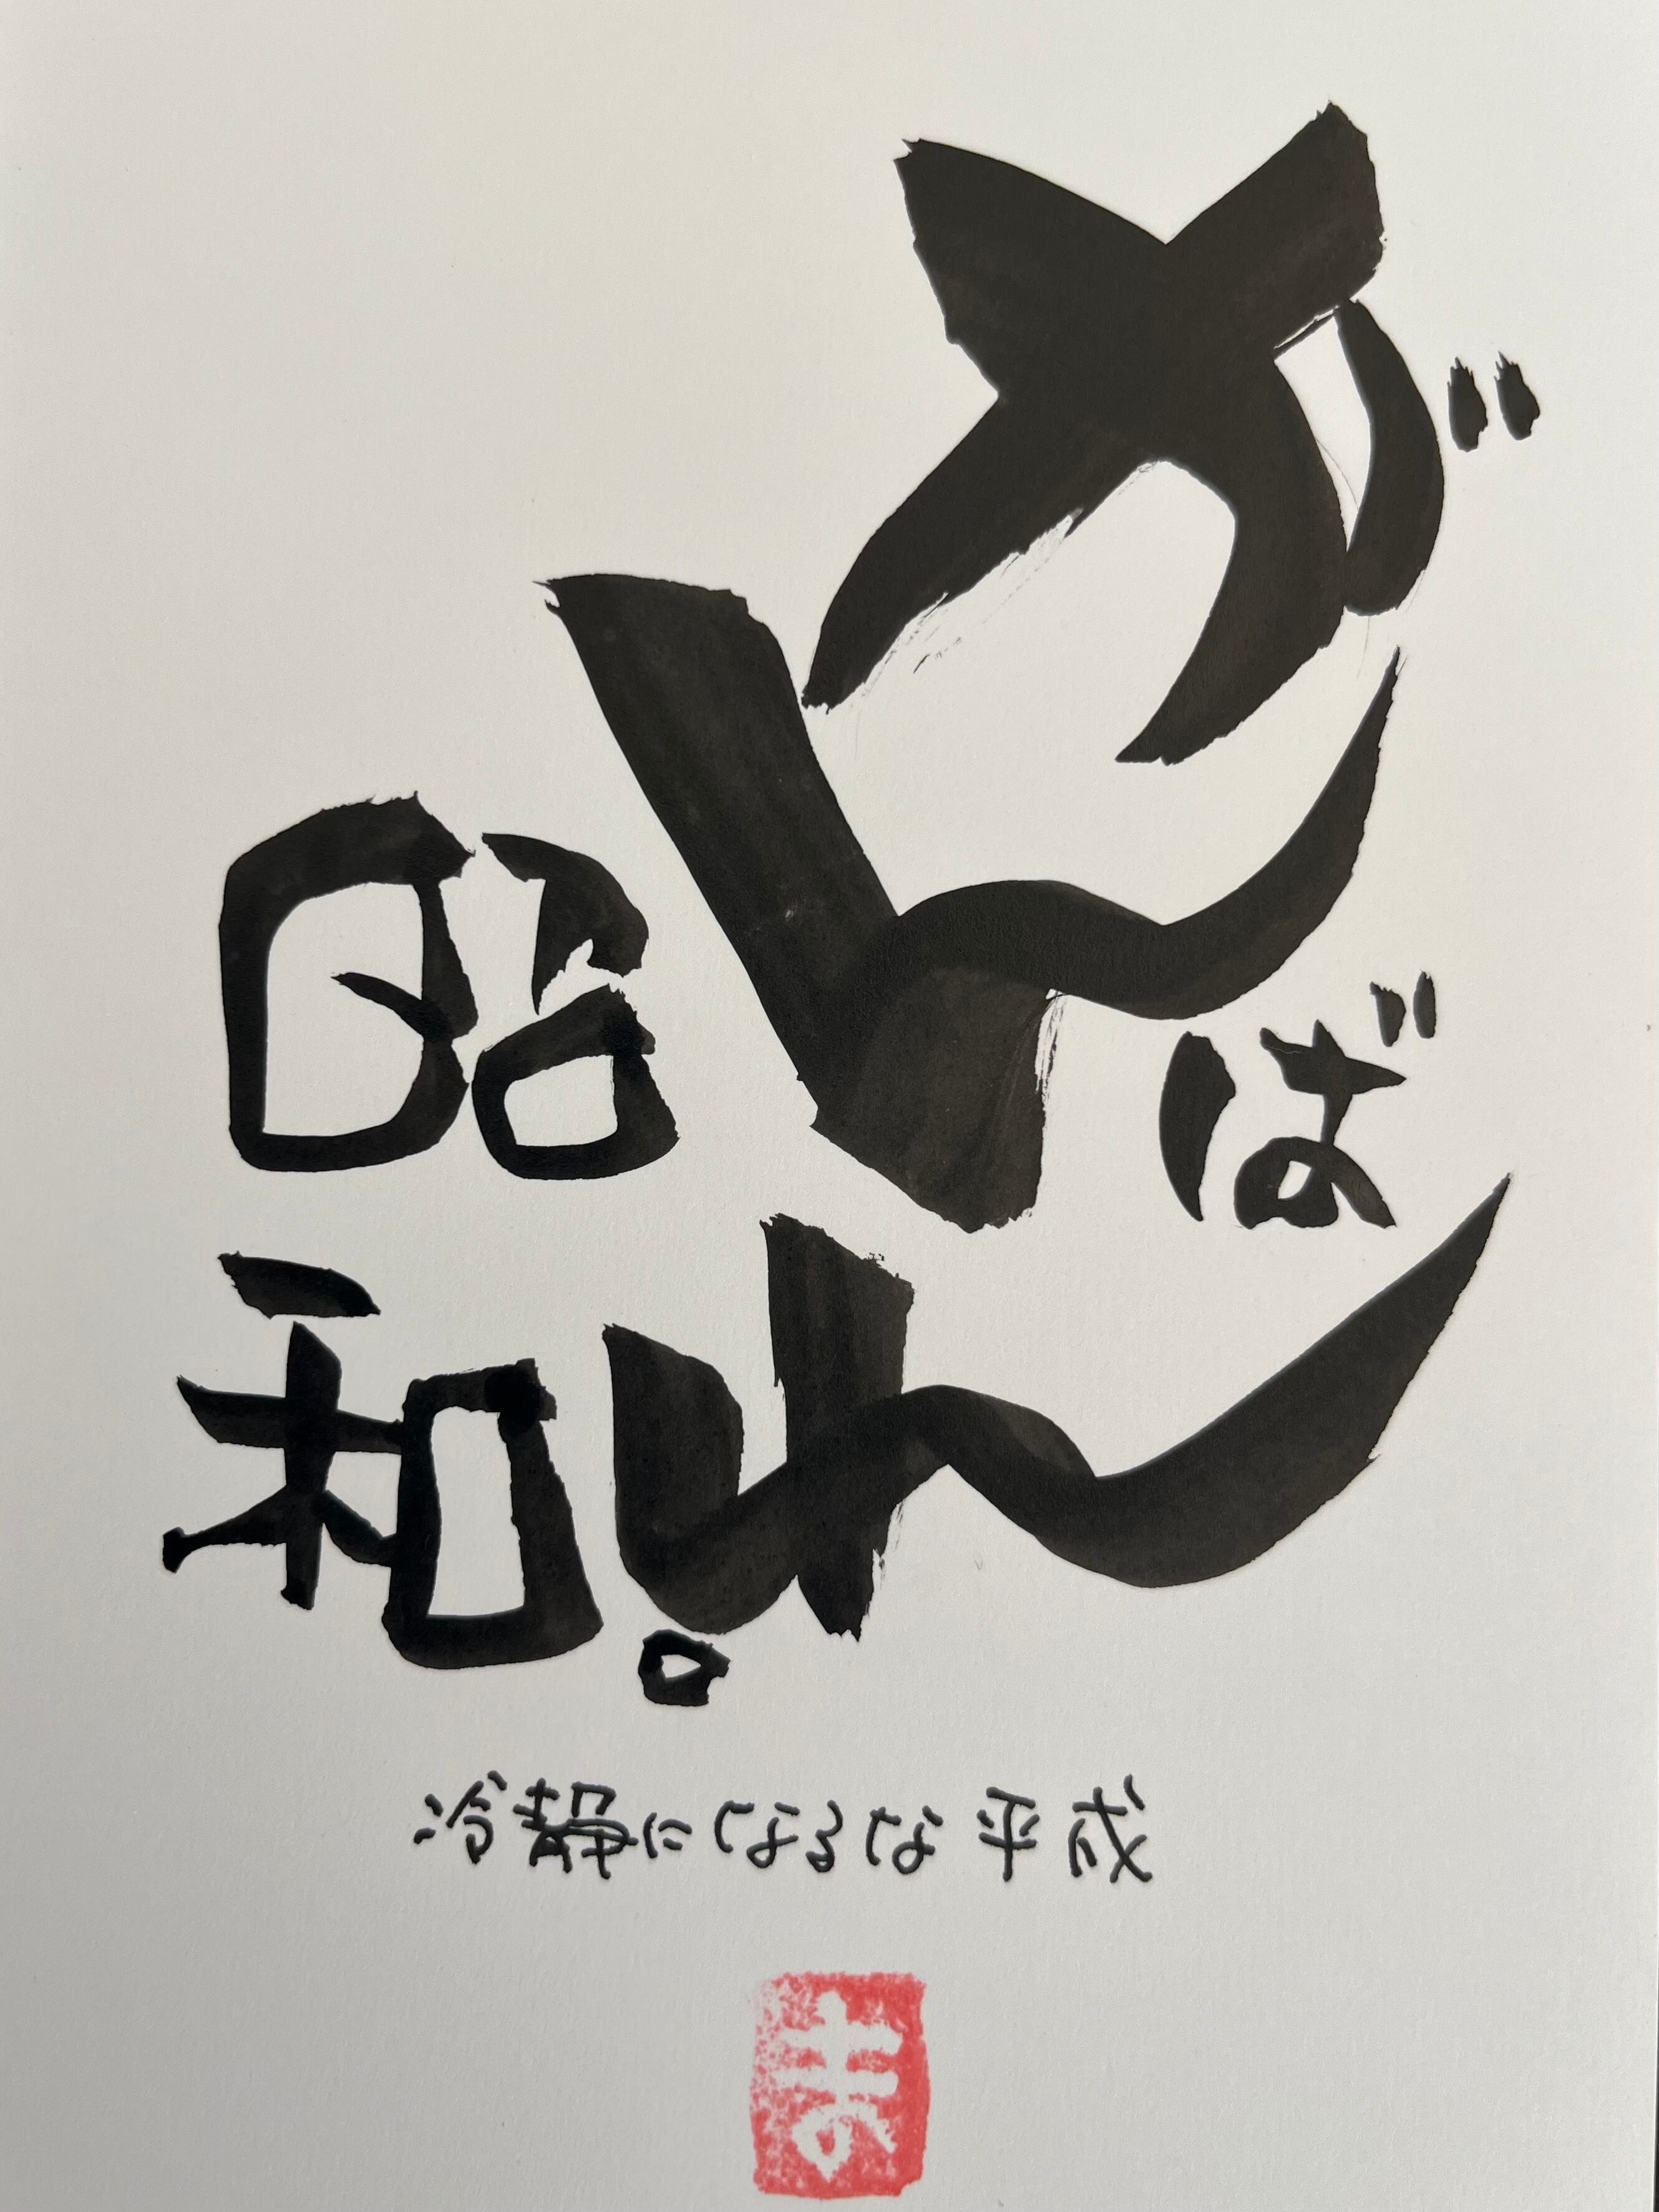 がんばれ
昭和。
冷静になるな 平成